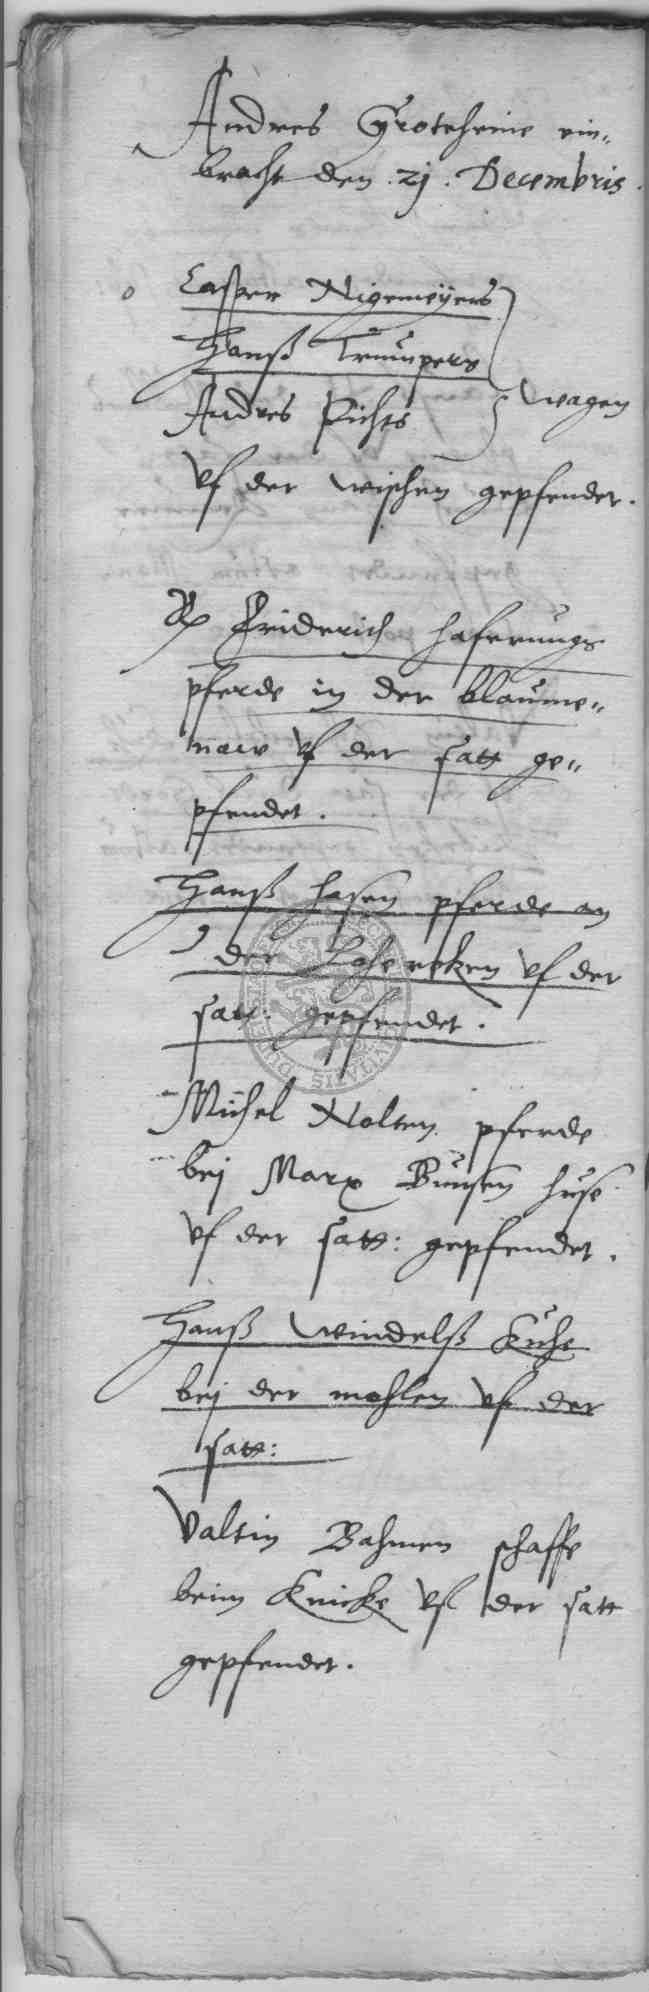 Andres Groteheine ein„
bracht den .21. Decembris.
Casper Nigemeyers
Hanß Trumpers
Andres Pichts } wagen
vf der wischen gepfendet.
Friderich haferungs
pferde in der blaume„
naw vf der satt ge„
pfendet.
Hanß hasen pferde an
der vf der
satt: gepfendet.
Michel Nolten pferde
bej Marx Bunsen huse
vf der satt: gepfendet.
Hanß Windelß Kuhe
bej der mohlen vf der
satt:
Valtin Bahmen schaffe
beim Knicke vf der satt
gepfendet.